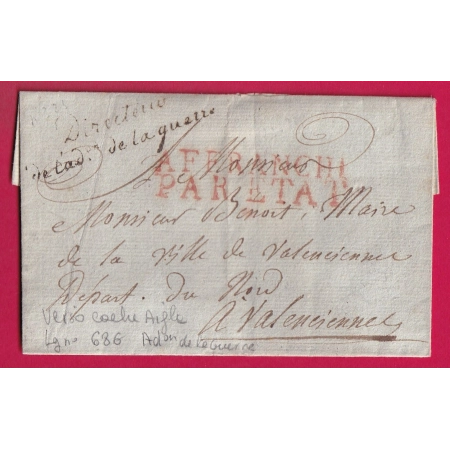 Directoire
de l'ad.on de la guerre
AFFRANCHI
PAR ETAT
a Monsieur
Monsieur Benoit, Maire
de la Ville de Valenciennes
Départ. du Nord
a Valenciennes
Verso cachet Aigle
686 Adon de la Guerre